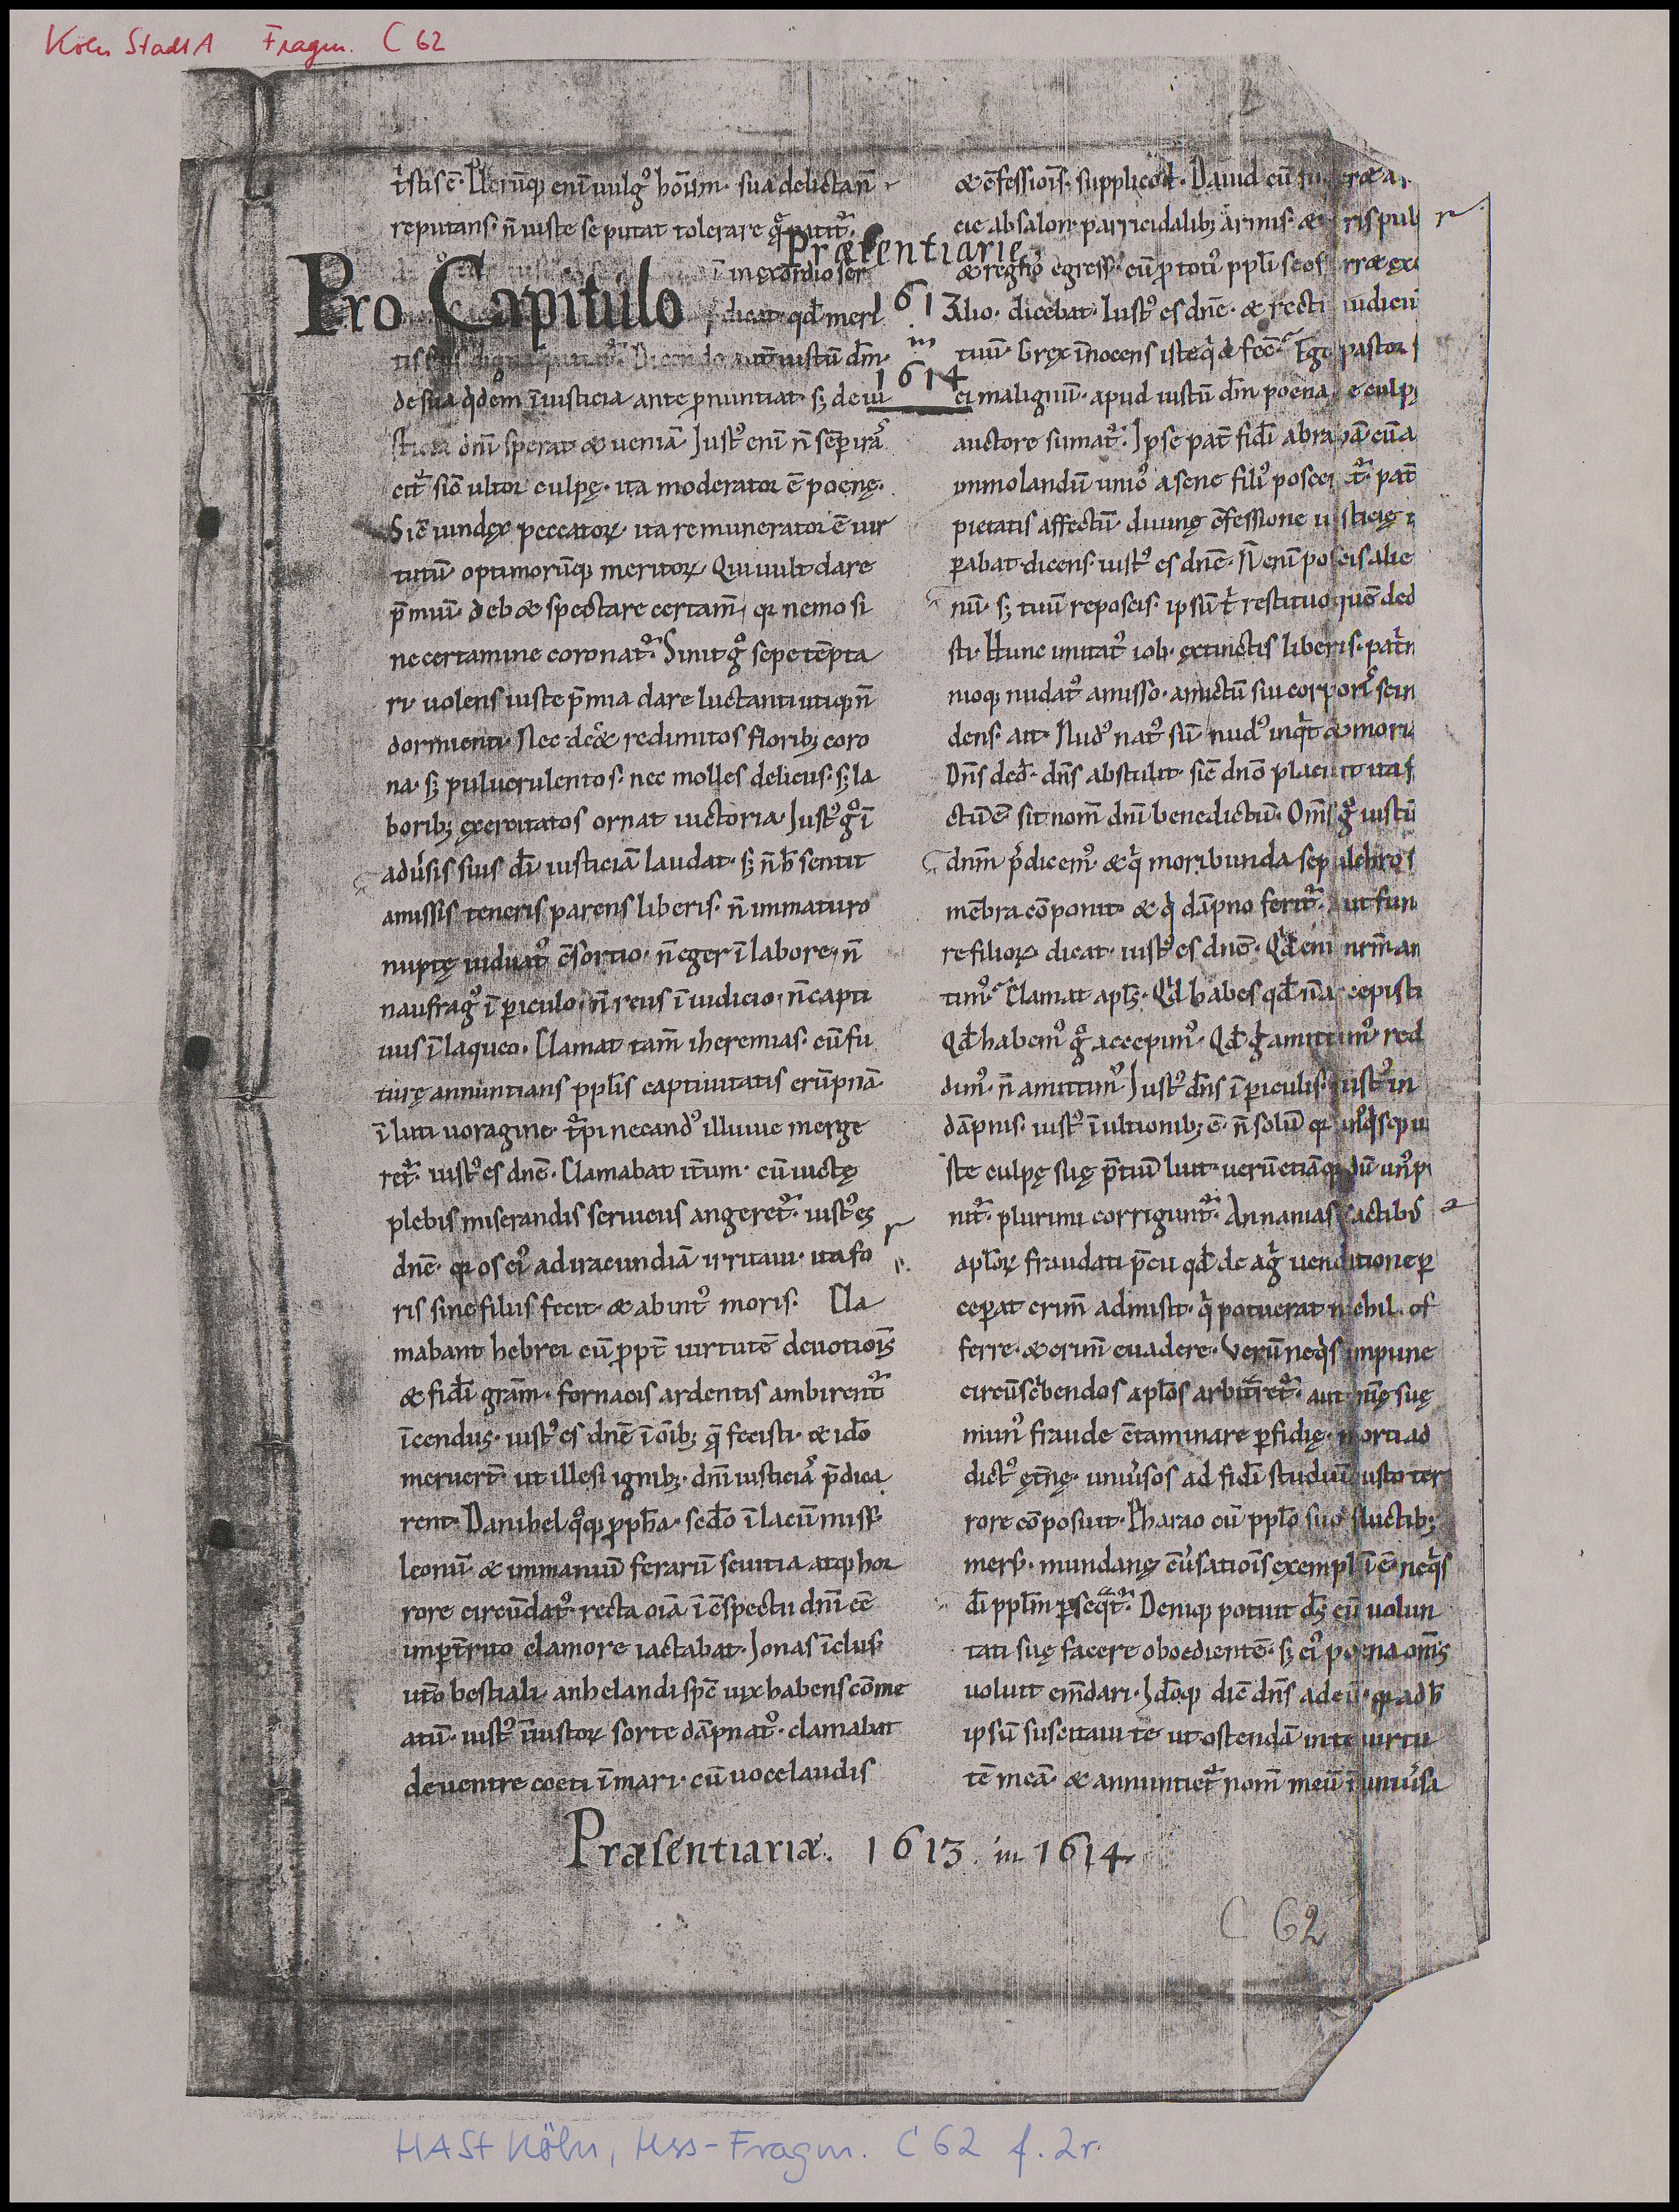 Köln StadtA Fragm. C 62
t̄stis ē. Pleruq; eni uulg᷒ hoūm. sua delictan̄
reputans. n̄ iuste se putat tolerare
Præsentiarie
Pro Capitulo
in exordio ser
dicat. qđ meri
1613
in
1614
de sua q̇dem īiusticia ante p̄nuntiat. sꝫ de iu
sticia dn̄i sperat & ueniā. Just᷒ eni n̄ semp irā
cit᷑. sic̄ ultor culpę. ita moderator ē poenę.
Sic̄ iundex peccatoꝝ. ita remunerator ē uir
tutū optimorūq; meritoꝝ. Qui uult dare
p̄miū. deb& spectare certam̄. qꝛ nemo si
ne certamine coronat᷑. Sinit gͦ sepe tēpta
ri. uolens iuste p̄mia dare luctanti utiq; n̄
dormienti. Nec dec& redimitos floribꝫ coro
na. sꝫ puluerulentos. nec molles deliciis. sꝫ la
boribꝫ exercitatos ornat uictoria. Just᷒ gͦ ī
adu̓sis suis dī iusticiā laudat. sꝫ n̄ ħ sentit
amissis teneris parens liberis. n̄ immaturo
nuptę uiduat᷒ c̄sortio. n̄ eger ī labore. n̄
naufrag᷒ ī piculo. n̄ reus ī iudicio. n̄ capti
uus ī laqueo. Clamat tam̄ iheremias. cū fu
turę annuntians ppl̄is captiuitatis erūpnā
ī luti uoragine. t᷑pi necand᷒ illuuie merge
ret᷑. iust᷒ es dn̄e. Clamabat it̄um. cū uictę
plebis miserandis seruicus angeret᷑. iust᷒ es
dn̄e. qꝛ os ei᷒ ad iracundiā irritaui. ita fo
ris sine filiis fecit. & ab int᷒ moris. Cla
mabant hebrei cū ppt̄ uirtutē deuotiois̄
& fidī gr̄am. fornacis ardentis ambirent᷑
īcendiis. iust᷒ es dn̄e ī oīb; q̄ fecisti. & ido̅
meruert̄. ut illesi ignibꝫ. dn̄i iusticiā p̄dica
rent. Danihel qͦq; ppħa. sedō ī lacū miss᷒
leonū. & immaniū ferarū seuitia atq; hor
rore circūdat᷒. recta oīa ī c̄spectu dn̄i eē
impt̄rito clamore iactabat. Jonas īclus᷒
ut̄o bestiali. anhelandi spē uix habens cōme
atū. iust᷒ iniustoꝝ sorte dāpnat᷒. clamabat
de uentre coeti ī mari. cū uoce laudis
& c̄fessiois̄. supplicod. Dauid cū
cie absalon. parricidalibꝫ armis. &
& regno egress᷒. cū p toti᷒ ppl̄i
lio. dicebat. Iust᷒ es dn̄e. & recti iudiciū
tuū. Grex īnocens iste q̇d fec̄. Ego pastor
ei malignū. apud iustū dm̄ poena e culpę
auctore sumat᷑. Ipse pat̄ fidī abrahā cū a
immolandū unic᷒ a sene fili᷒ poscer& t᷑. pat̄
pietatis affectū. diuinę c̄fessione iusticię
pabat. dicens. iust᷒ es dn̄e. N̄ eni poscis alie
nū. sꝫ tuū reposcis. ipsū t̄ restituo quē ded
sti. Hunc imitat᷒ iob. extinctis liberis. pat̄ri
nioq; nudat᷒ amisso. amictū sui corporis scin
dens. ait. Nud᷒ nat᷒ sū nud᷒ inq̇t & mori
Dn̄s ded̄. dn̄s abstulit. sic̄ dn̄o placuit ita f
ctū ē. sit nom̄ dn̄i benedictū. Om̄s gͦ iustū
dn̄m p̄dicem᷒. & q̇ moribunda sepulchro
mēbra cōponit. & q̇ dāpno ferit᷑. ut fun
re filioꝝ dicat. iust᷒ es dn̄e. Qđ eni nrm̄ am
tim᷒. Clamat apl̄s. Qđ habes qđ n̄ accepisti
Qđ habem᷒ gͦ accepim᷒. Qđ gͦ amittim᷒ red
dim᷒. n̄ amittim᷒. Just᷒ dn̄s ī piculis. iust᷒ in
dāpnis. iust᷒ ī ultionibꝫ ē. n̄ solū qꝛ
ste culpę suę p̄tiū luit. uerū etiā qꝛ dū un᷒ p
nit᷑. plurimi corrigunt᷑. Annanias actibꝫ
apl̄oꝝ fraudati p̄cii qđ de ag̓ uenditione p
cepat crim̄ admisit. q̇ potuerat nichil of
ferre. & crim̄ euadere. Verū neq̇s impune
circūsc̓bendos apl̄os arbitrar&᷑. aut m̄tę suę
mun᷒ fraude c̄taminare pfidię. morti ad
dict᷒ ęt̄nę. uniu̓sos ad fidī studiū iusto ter
rore cōposuit. Pharao cū ppl̄o suo fluctibꝫ
mers᷒. mundanę c̄u̓satiois̄ exempl̄ ī ē. neq̇s
dī ppl̄m pseq̇t᷑. Deniq; potuit dꝫ eū uolun
tati suę facere oboedientē. sꝫ ei᷒ poena om̄s
uoluit em̄dari. Ido̅q; dic̄ dn̄s ad eū. qꝛ ad ħ
ipsū suscitaui te ut ostendā in te uirtu
tē meā. & annuntiet᷑ nom̄ meū ī uniu̓sa
Præsentiariæ. 1613. in 1614
C 62
HASt Köln, Hss-Fragm. C 62 f. 2r.